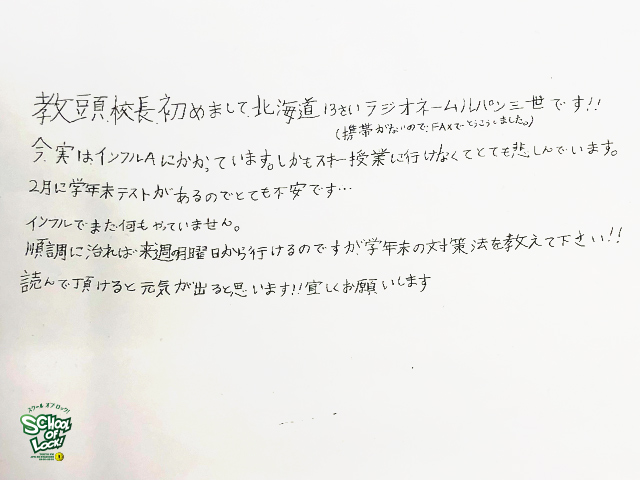 教頭、校長、初めまして、北海道13さいラジオネームルパン三世です!!
(携帯がないのでFAXでとうこうしました。)
今、実はインフルAにかかっています。しかもスキー授業に行けなくてとても悲しんでいます。
2月に学年末テストがあるのでとても不安です…
インフルでまだ何もやっていません。
順調に治れば来週の月曜日から行けるのですが、学年末の対策法を教えて下さい!!
読んで頂けると元気が出ると思います!!宜しくお願いします
スクール オブ ロック!
SCHOOL OF LOCK!